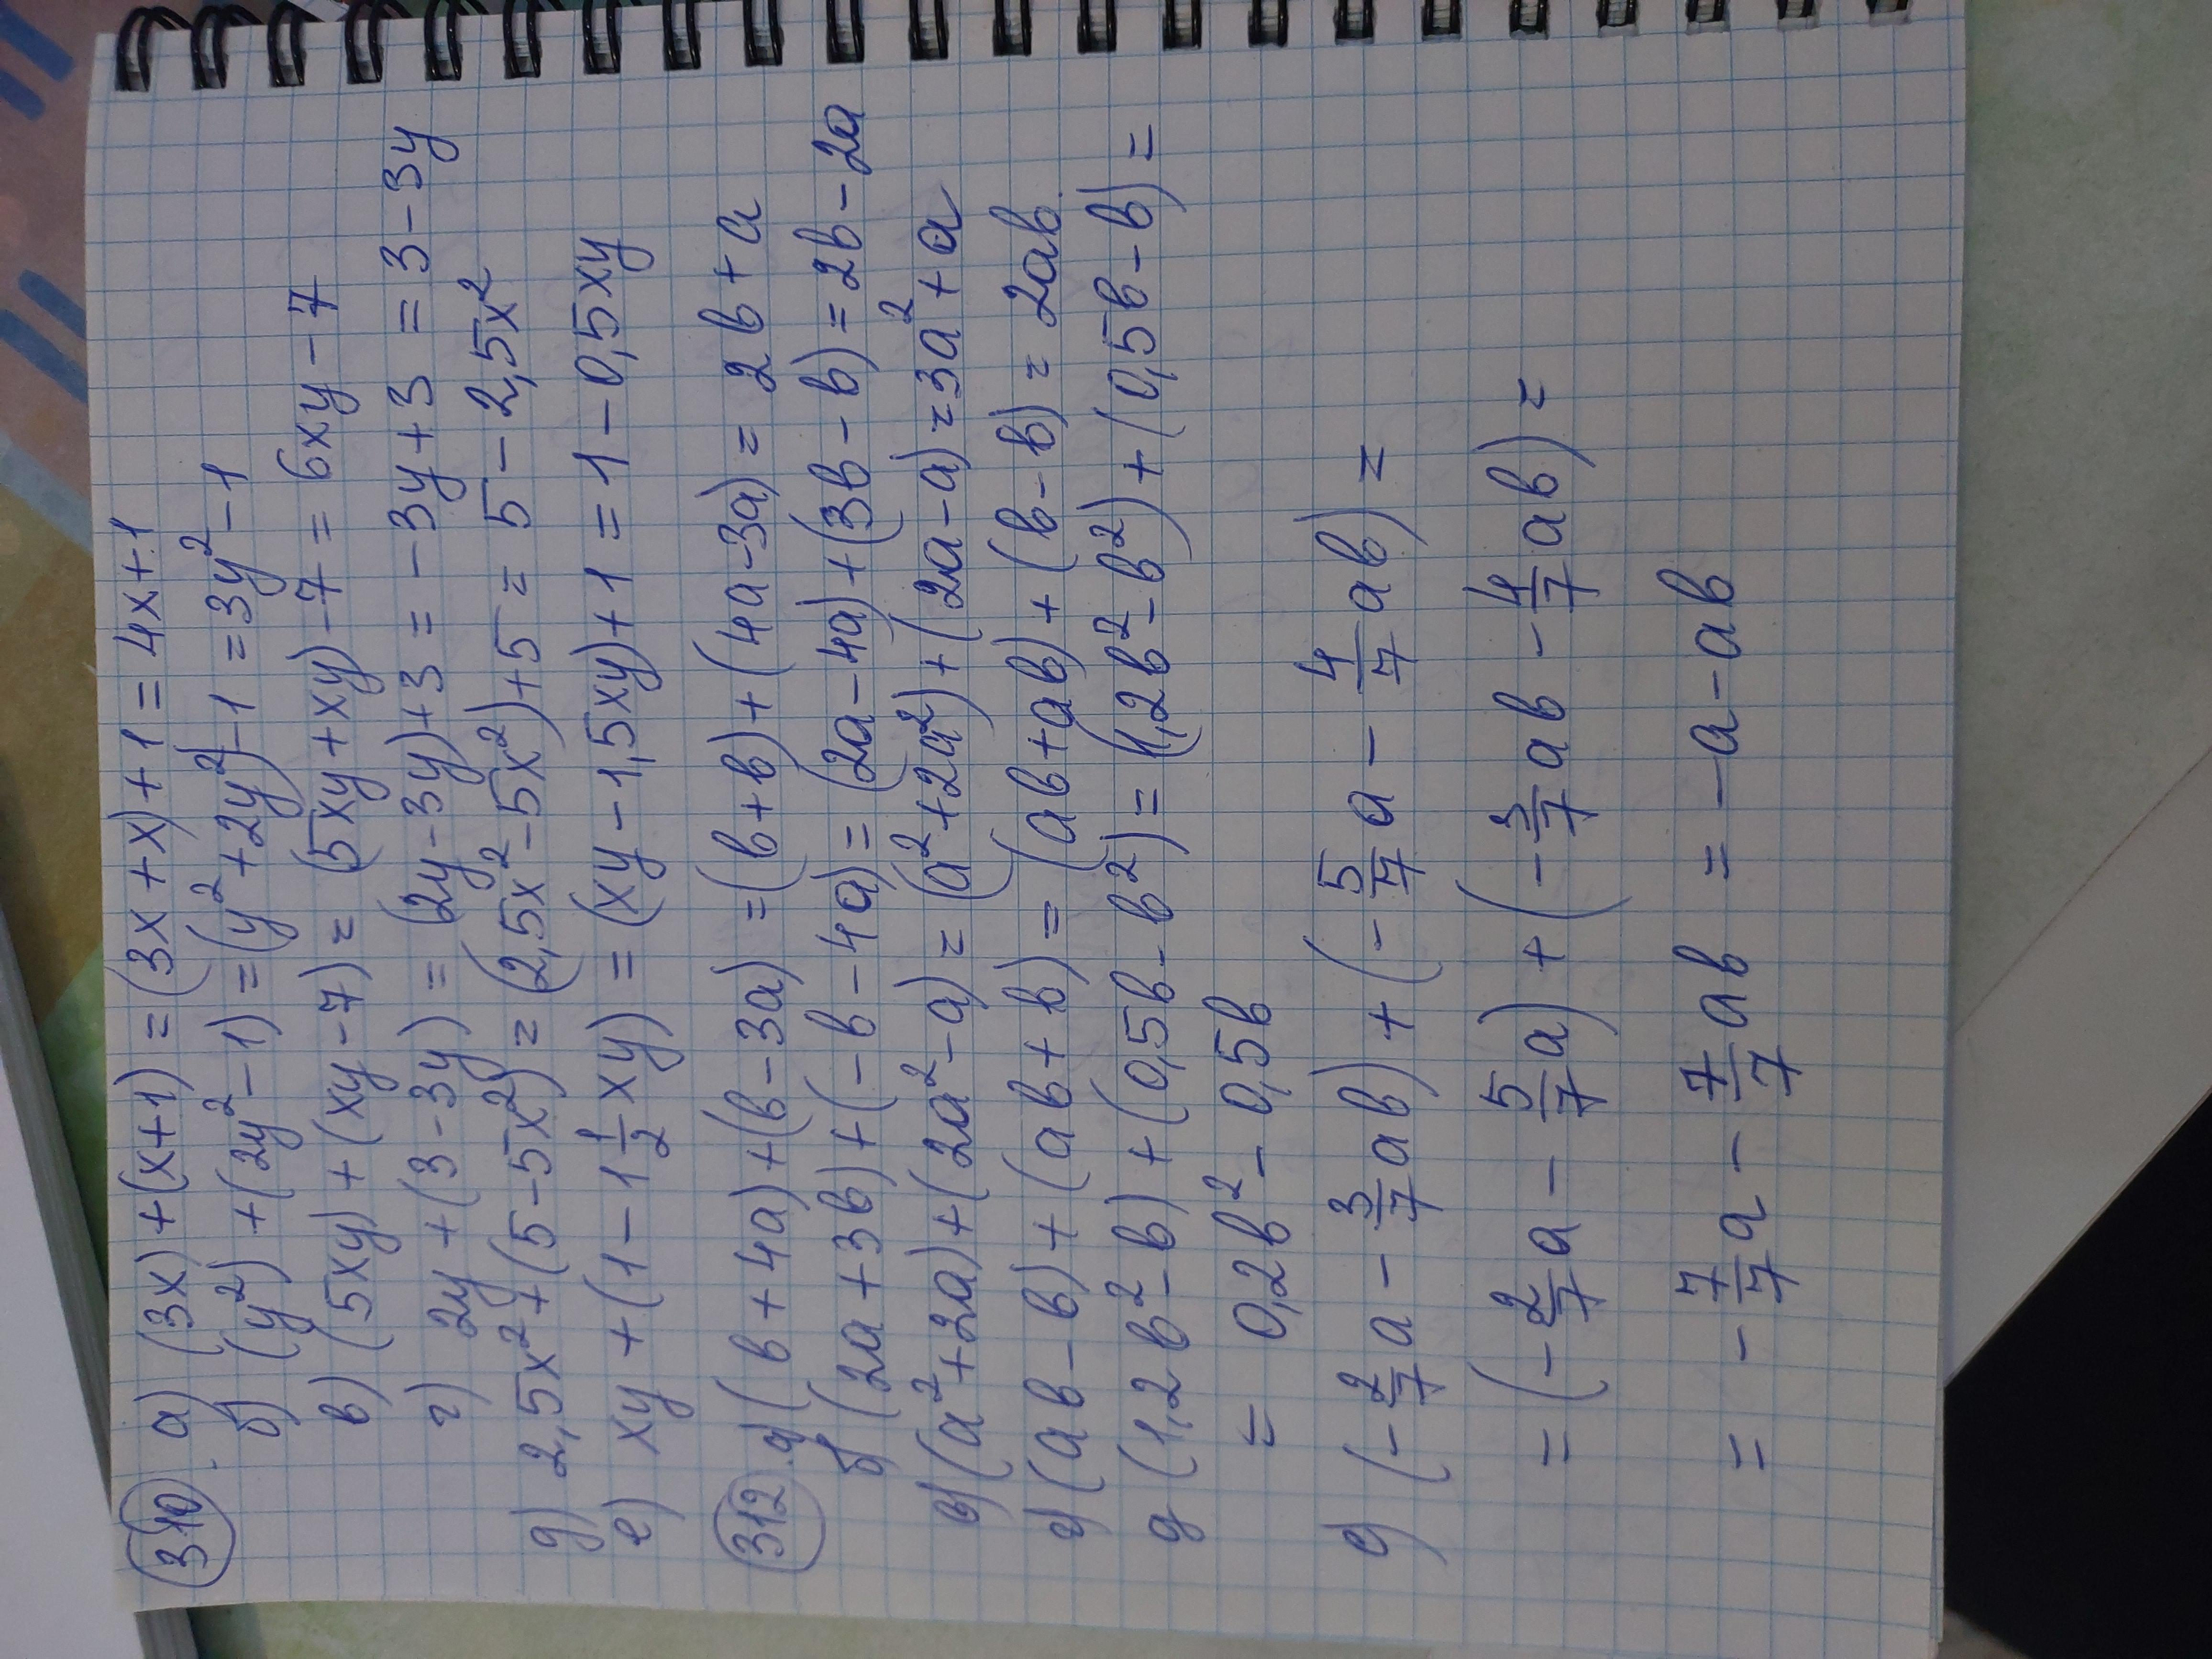 310. а) (3x)+(x+1)=(3x+x)+1=4x+1
б) (y²)+(2y²-1)=(y²+2y²)-1=3y²-1
в) (5xy)+(xy-7)=(5xy+xy)-7=6xy-7
г) 2y+(3-3y)=(2y-3y)+3=-3y+3=3-3y
д) 2,5x²+(5-5x²)=(2,5x²-5x²)+5=5-2,5x²
е) xy+(1-1 1/2 xy)=(xy-1,5xy)+1=1-0,5xy
312. а) (b+4a)+(b-3a)=(b+b)+(4a-3a)=2b+a
б) (2a+3b)+(-b-4a)=(2a-4a)+(3b-b)=2b-2a
в) (a²+2a)+(2a²-a)=(a²+2a²)+(2a-a)=3a²+a
г) (ab-b)+(ab+b)=(ab+ab)+(b-b)=2ab
д (1,2b²-b)+(0,5b-b²)=(1,2b²-b²)+(0,5b-b)=
= 0,2b²-0,5b
е) (-2/7a-3/7ab)+(-5/7a-4/7ab)=
=(-2/7a-5/7a)+(-3/7ab-4/7ab)=
=-7/7a-7/7ab=-a-ab